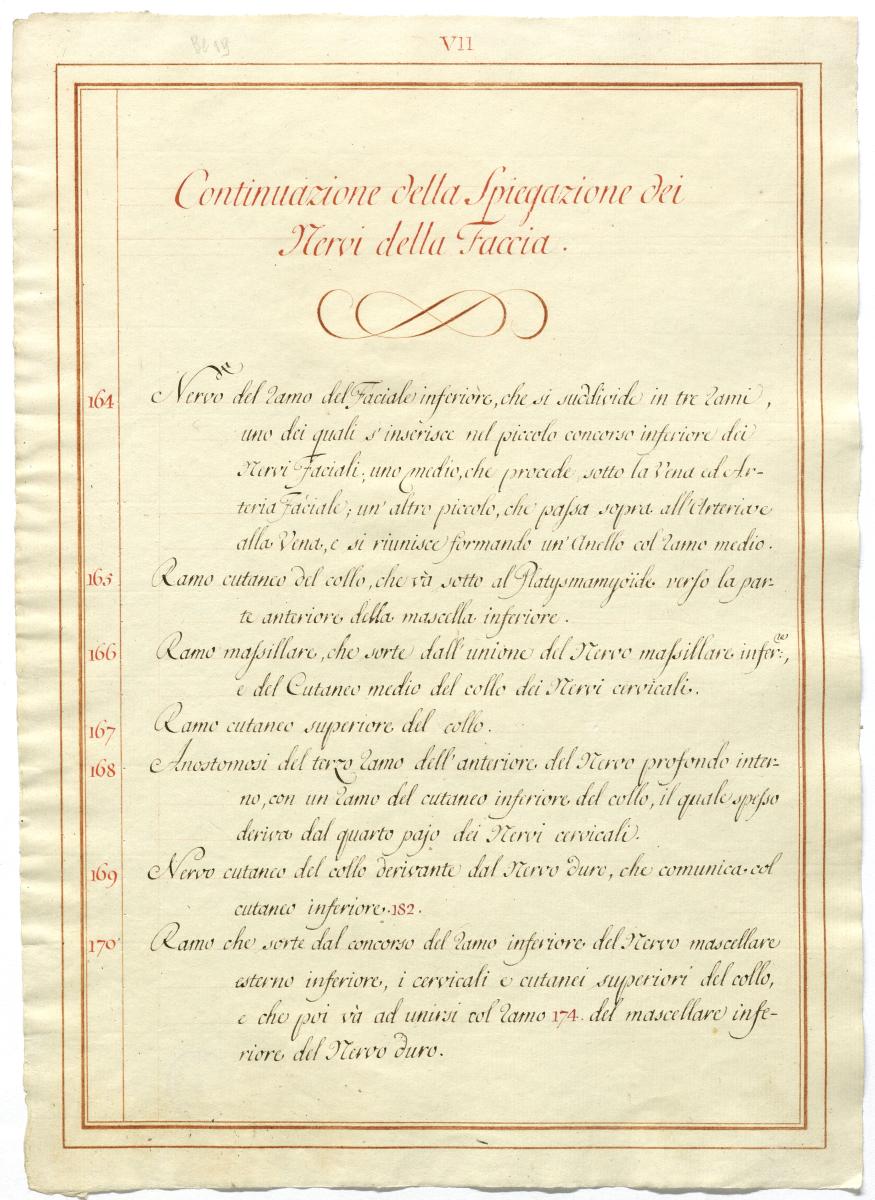 VII
Continuazione della Spiegazione dei
Nervi della Faccia.
164 Nervo del Ramo del Faciale inferiore, che si suddivide in tre Rami,
uno dei quali s'inserisce nel piccolo concorso inferiore dei
Nervi Faciali; uno medio, che procede sotto la Vena ed Ar-
teria Faciale; un'altro piccolo, che passa sopra all'Arteria e
alla Vena, e si riunisce formando un'Anello col Ramo medio.
165 Ramo cutaneo del collo, che và sotto al Platysmamyoide verso la par-
te anteriore della mascella inferiore.
166 Ramo massillare, che sorte dall'unione del Nervo massillare infer:re,
e del Cutaneo medio del collo dei Nervi cervicali.
167 Ramo cutaneo superiore del collo.
168 Anostomosi del terzo Ramo dell'anteriore del Nervo profondo inter-
no, con un Ramo del cutaneo inferiore del collo, il quale spesso
deriva dal quarto pajo dei Nervi cervicali.
169 Nervo cutaneo del collo derivante dal Nervo duro, che comunica col
cutaneo inferiore .182.
170 Ramo che sorte dal concorso del Ramo inferiore del Nervo mascellare
esterno inferiore, i cervicali e cutanei superiori del collo,
e che poi và ad unirsi col Ramo 174. del mascellare infe-
riore del Nervo duro.